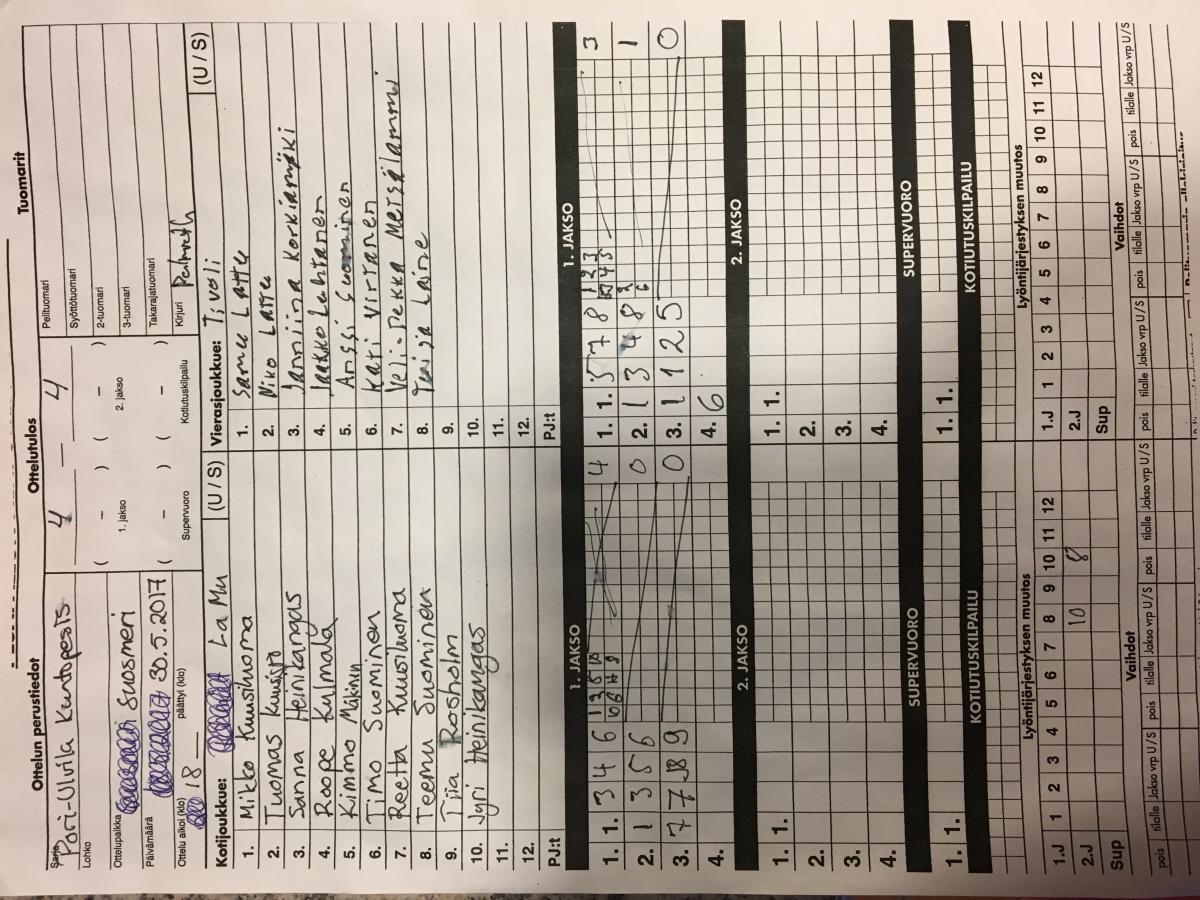 Ottelun perustiedot
Ottelutulos
Tuomarit
Sarja Pori-Ulvila Kuntopesis
4 – 4
Pelituomari
Lohko
Syöttötuomari
Ottelupaikka Suosmeri
( – ) ( – )
1. jakso 2. jakso
2-tuomari
3-tuomari
Päivämäärä 30.5.2017
( – ) ( – )
Takarajatuomari
Ottelu alkoi (klo) 18 – päättyi (klo)
Supervuoro Kotiutuskilpailu
Kirjuri Palmuth
Kotijoukkue: LaMu (U / S)
1. Mikko Kuusihuoma
2. Tuomas
3. Sanna Heinikangas
4. Roope Kulmala
5. Kimmo Mäkinen
6. Timo Suominen
7. Reetta Kuusiluoma
8. Teemu Suominen
9. Tiia Rosholm
10. Jyri Heinikangas
11.
12.
PJ:t
Vierasjoukkue: Tivoli (U / S)
1. Samu Latt
2. Niko Latt
3. Janniina Korkiamäki
4. Jaakko Lehtanen
5. Anssi Suominen
6. Kati Virtanen
7. Veli-Pekka Metsälammi
8. Tuija Laine
9.
10.
11.
12.
PJ:t
1. JAKSO
1. 1. 3 4 6 4
2. 1 3 5 6 0
3. 7 7 8 9 0
4.
1. JAKSO
1. 1. 5 7 8 3
2. 1 3 4 8 1
3. 1 1 2 5 0
4. 6
2. JAKSO
1. 1.
2.
3.
4.
2. JAKSO
1. 1.
2.
3.
4.
SUPERVUORO
1. 1.
SUPERVUORO
1. 1.
KOTIUTUSKILPAILU
KOTIUTUSKILPAILU
Lyöntijärjestyksen muutos
1 2 3 4 5 6 7 8 9 10 11 12
1.J
2.J 10 8
Sup
Lyöntijärjestyksen muutos
1 2 3 4 5 6 7 8 9 10 11 12
1.J
2.J
Sup
Vaihdot
pois tilalle Jakso vrp U / S pois tilalle Jakso vrp U / S pois tilalle Jakso vrp U / S
pois
Vaihdot
pois tilalle Jakso vrp U / S pois tilalle Jakso vrp U / S pois tilalle Jakso vrp U / S